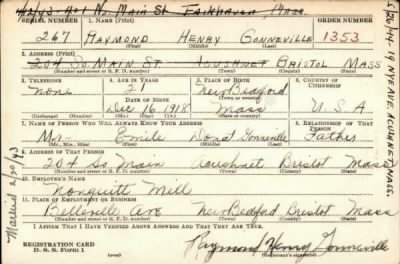 4/2/43 - 201 N. Main St Fairhaven Mass.
SERIAL NUMBER
1. NAME (Print)
ORDER NUMBER
267
RAYMOND HENRY GONNEVILLE
1353
(First) (Middle) (Last)
2. ADDRESS (Print)
204 SO. MAIN ST. ACUSHNET BRISTOL MASS
(Number and street or R. F. D. number) (Town) (County) (State)
3. TELEPHONE
4. AGE IN YEARS
5. PLACE OF BIRTH
6. COUNTRY OF CITIZENSHIP
none
21
New Bedford
DATE OF BIRTH
(Town or county)
Dec 16 1918
Mass
U.S.A
(Exchange) (Number)
(Mo.) (Day) (Yr.)
(State or country)
7. NAME OF PERSON WHO WILL ALWAYS KNOW YOUR ADDRESS
8. RELATIONSHIP OF THAT PERSON
Mr Emile Donat Gonneville Father
(Mr., Mrs., Miss) (First) (Middle) (Last)
9. ADDRESS OF THAT PERSON
204 So Main Acushnet Bristol Mass
(Number and street or R. F. D. number) (Town) (County) (State)
10. EMPLOYER'S NAME
Nonquitt Mill
11. PLACE OF EMPLOYMENT OR BUSINESS
Belleville Ave New Bedford Bristol Mass
(Number and street or R. F. D. number) (Town) (County) (State)
I AFFIRM THAT I HAVE VERIFIED ABOVE ANSWERS AND THAT THEY ARE TRUE.
REGISTRATION CARD
D. S. S. Form 1
Raymond Henry Gonneville
(Registrant's signature)
5/20/44 - 19 NYE AVE. ACUSHNET, MASS.
Mailed 2/20/43